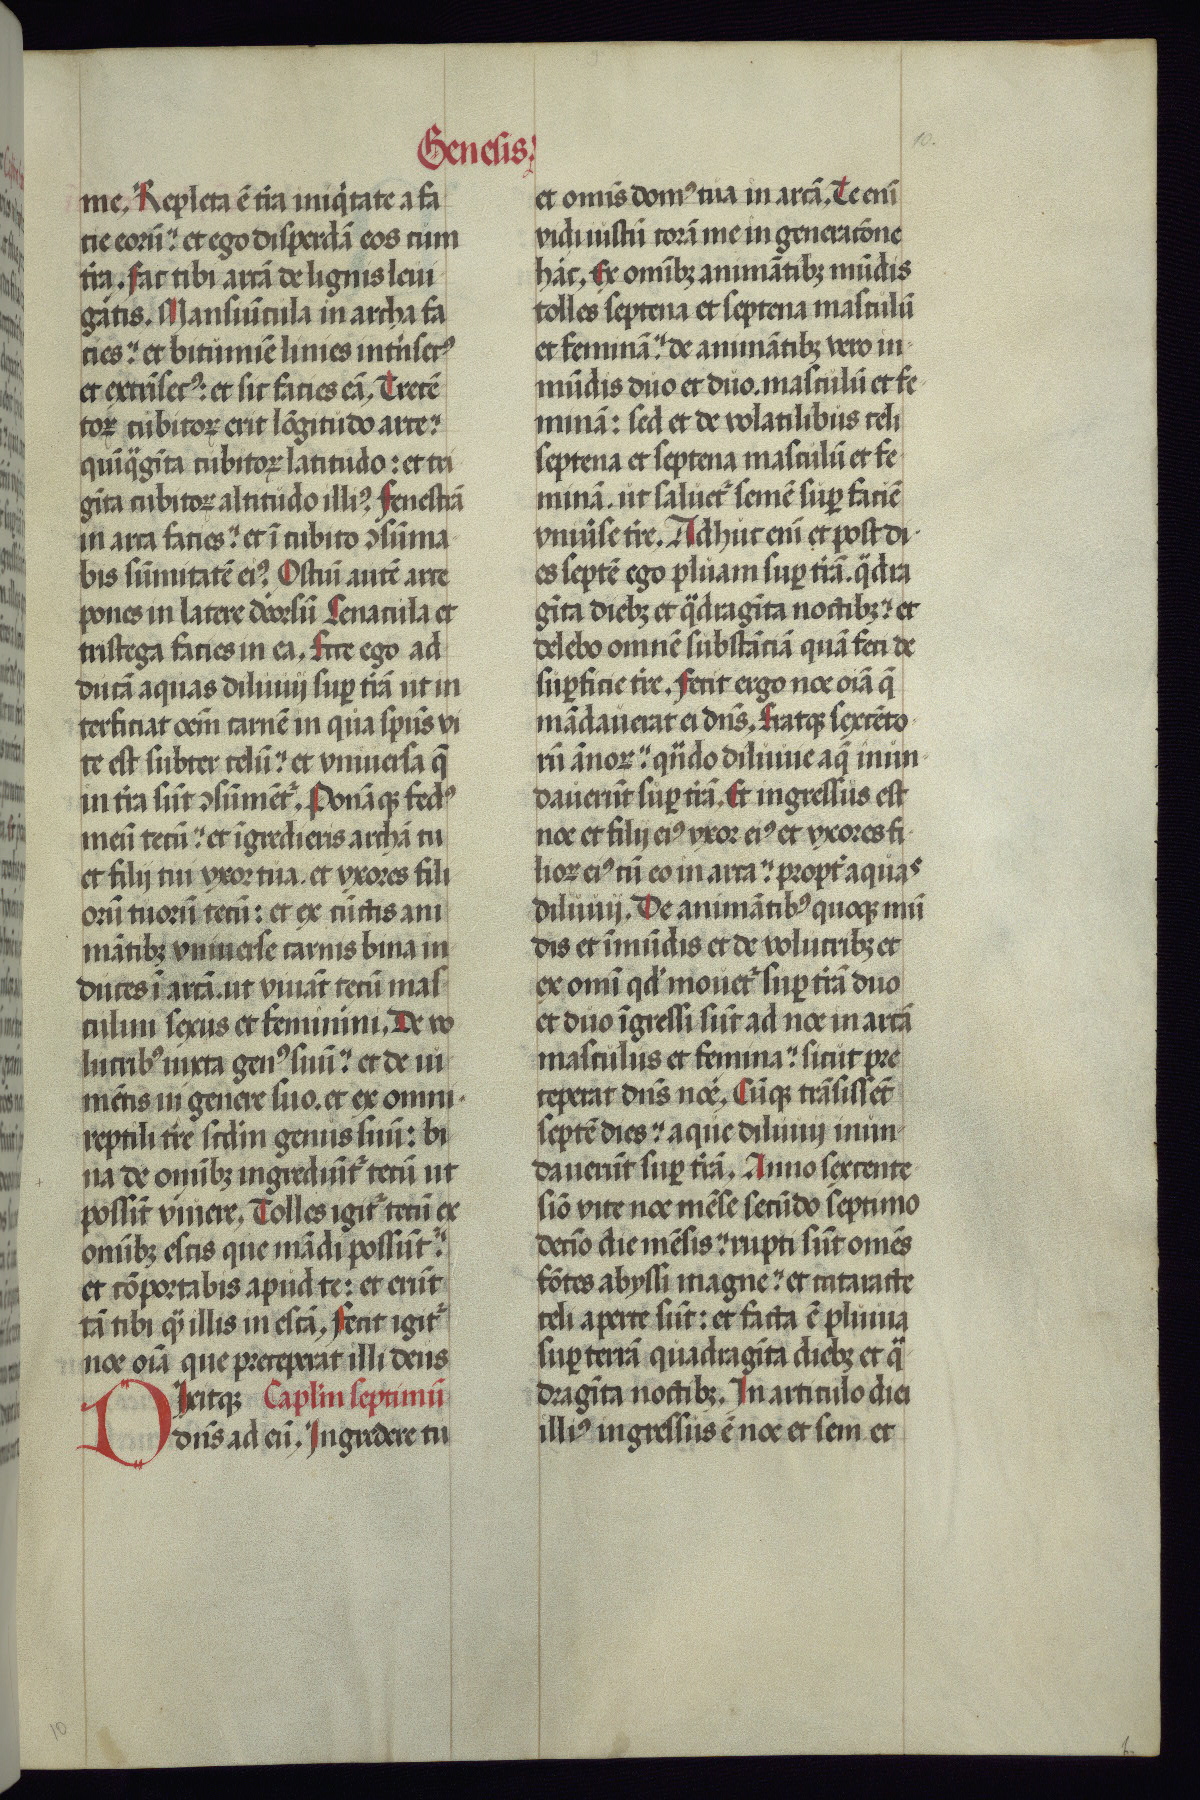 Genesis.
10.
me. Repleta ē t̄ra iniq̇tate a fa
cie eorū: et ego disperdā eos cum
t̄ra. Fac tibi arcā de lignis leui
gatis. Mansiūcula in archa fa
cies: et bitumīe linies int̄nsecꝰ
et ext̄nsecꝰ: et sic facies eā. Trecē
toꝝ cubitoꝝ erit lōgitudo arce:
quīq̈gīta cubitoꝝ latitudo: et tri
gīta cubitoꝝ altitudo illiꝰ. Fenestrā
in arca facies: et ī cubito ↄsūma
bis sūmitatē eiꝰ. Ostiū autē arce
pones in latere deorsū Cenacula et
tristega facies in ea. Ecce ego ad
ducā aquas diluuij suꝑ t̄rā ut in
terficiat oēm carnē in qua spūs vi
te est subter celū: et vniuersa q̄
in t̄ra sūt ↄsumēt᷑. Ponāqꝫ fedꝰ
meū tecū: et īgredieris archā tu
et filij tui vxor tua et vxores fili
orū tuorū tecū: et ex cūctis ani
mātibꝫ vniuerse carnis bina in
duces ī arcā ut viuāt tecū mas
culini sexus et feminini. De vo
lucribꝰ iuxta genꝰ suū: et de iu
mētis in genere suo. et ex omni
reptili t̄re scd̄m genus suū: bi
na de omībꝫ ingrediūt᷑ tecū ut
possīt viuere. Tolles igit᷑ tecū ex
omībꝫ escis que mādi possūt:
et cōportabis apud te: et erūt
tā tibi q̄ illis in escā. Fecit igit᷑
noe oīā que preceperat illi deus
Dixitqꝫ Cap̄lm septimū
dn̄s ad eū. Ingredere tu
et omīs domꝰ tua in arcā. Te enī
vidi iustū corā me in generacōne
hac. Ex omībꝫ animātibꝫ mūdis
tolles septena et septena masculū
et feminā: de animātibꝫ vero in
mūdis duo et duo. masculū et fe
minā: sed et de volatilibus celi
septena et septena masculū et fe
minā. ut saluet᷑ semē suꝑ faciē
vniūse t̄re. Adhuc enī et post di
es septē ego pluam suꝑ t̄rā. q̈dra
gīta diebꝫ et q̈dragīta noctibꝫ: et
delebo omnē substāciā quā feci de
suꝑficie t̄re. Fecit ergo noe oīā q̄
mādauerat ei dn̄s. Eratqꝫ sexcēto
rū ānoꝝ: qn̄do diluuie aq̄ inun
dauerūt suꝑ t̄rā. Et ingressus est
noe et filij eiꝰ vxor eiꝰ et vxores fi
lioꝝ eiꝰ cū eo in arca: propt̄ aquas
diluuij. De animātibꝰ quoqꝫ mū
dis et īmūdis et de volucribꝫ et
ex omī qd̄ mouet᷑ suꝑ t̄rā duo
et duo īgressi sūt ad noe in arcā
masculus et femina: sicut pre
ceperat dn̄s noe. Cūqꝫ trāsissēt
septē dies: aque diluuij inun
dauerūt suꝑ t̄rā. Anno sexcente
sīo vite noe mēse secūdo septimo
decīo die mēsis: rupti sūt omēs
fōtes abyssi magne: et cataracte
celi aperte sūt: et facta ē pluuia
suꝑ terrā quadragīta diebꝫ et q̈
dragīta noctibꝫ. In articulo diei
illiꝰ ingressus ē noe et sem et
10